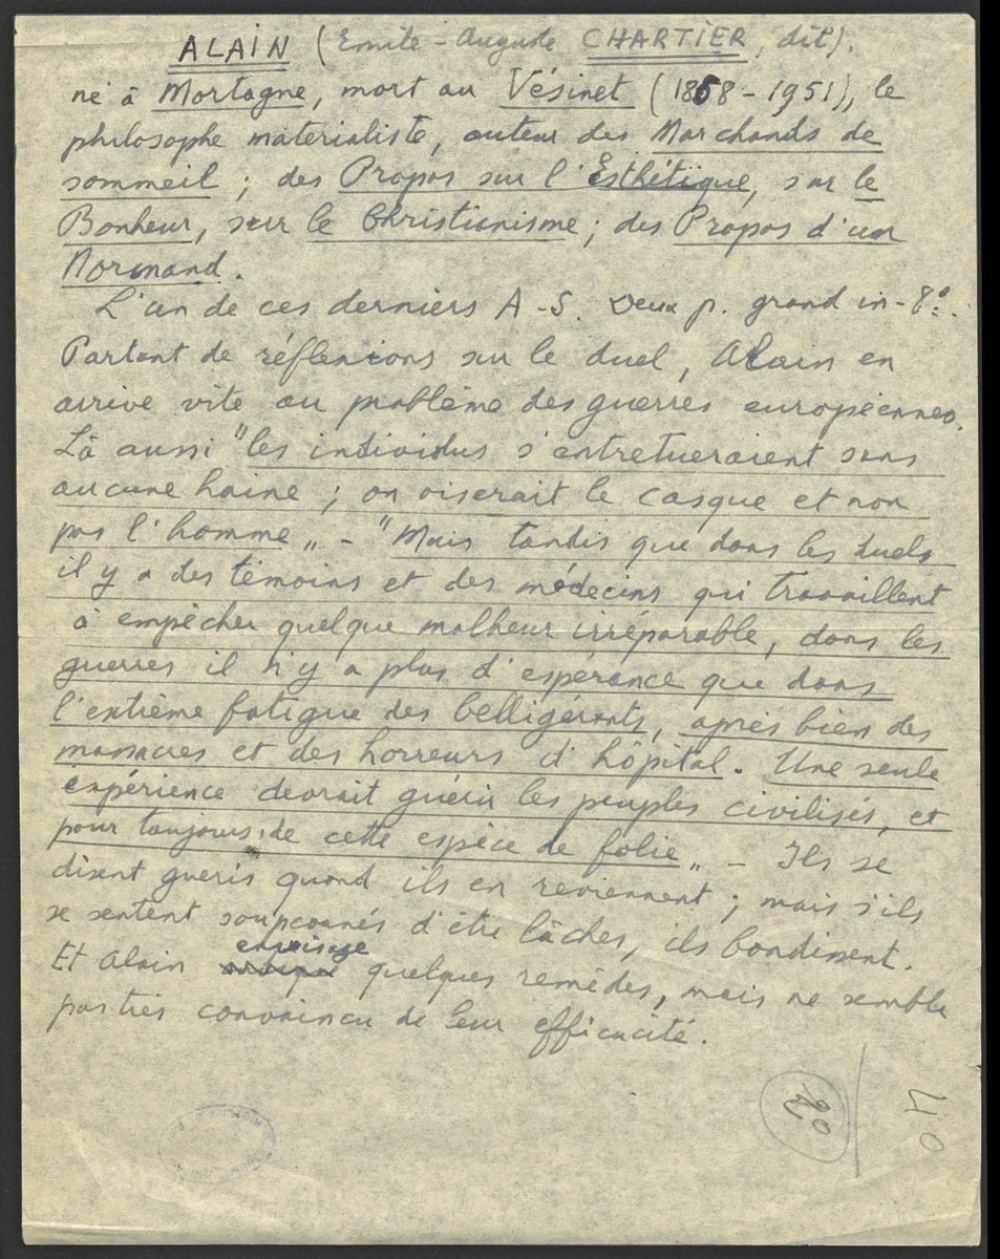 ALAIN (Emile-Auguste CHARTIER, dit).
né à Mortagne, mort au Vésinet (1868-1951), le
philosophe matérialiste, auteur des Marchands de
sommeil ; des Propos sur l'Esthétique, sur le
Bonheur, sur le Christianisme ; des Propos d'un
Normand.
L'un de ces derniers A-S. Deux p. grand in-8°.
Partant de réflexions sur le duel, Alain en
arrive vite au problème des guerres européennes.
Là aussi "les individus s'entretueraient sans
aucune haine ; on viserait le casque et non
pas l'homme„ - "Mais tandis que dans les duels
il y a des témoins et des médecins qui travaillent
à empêcher quelque malheur irréparable, dans les
guerres il n'y a plus d'espérance que dans
l'extrême fatigue des belligérants, après bien des
massacres et des horreurs d'hôpital. Une seule
expérience devrait guérir les peuples civilisés, et
pour toujours, de cette espèce de folie„ - Ils se
disent guéris quand ils en reviennent ; mais s'ils
se sentent soupçonnés d'être lâches, ils bondissent.
Et Alain envisage quelques remèdes, mais ne semble
pas très convaincu de leur efficacité.